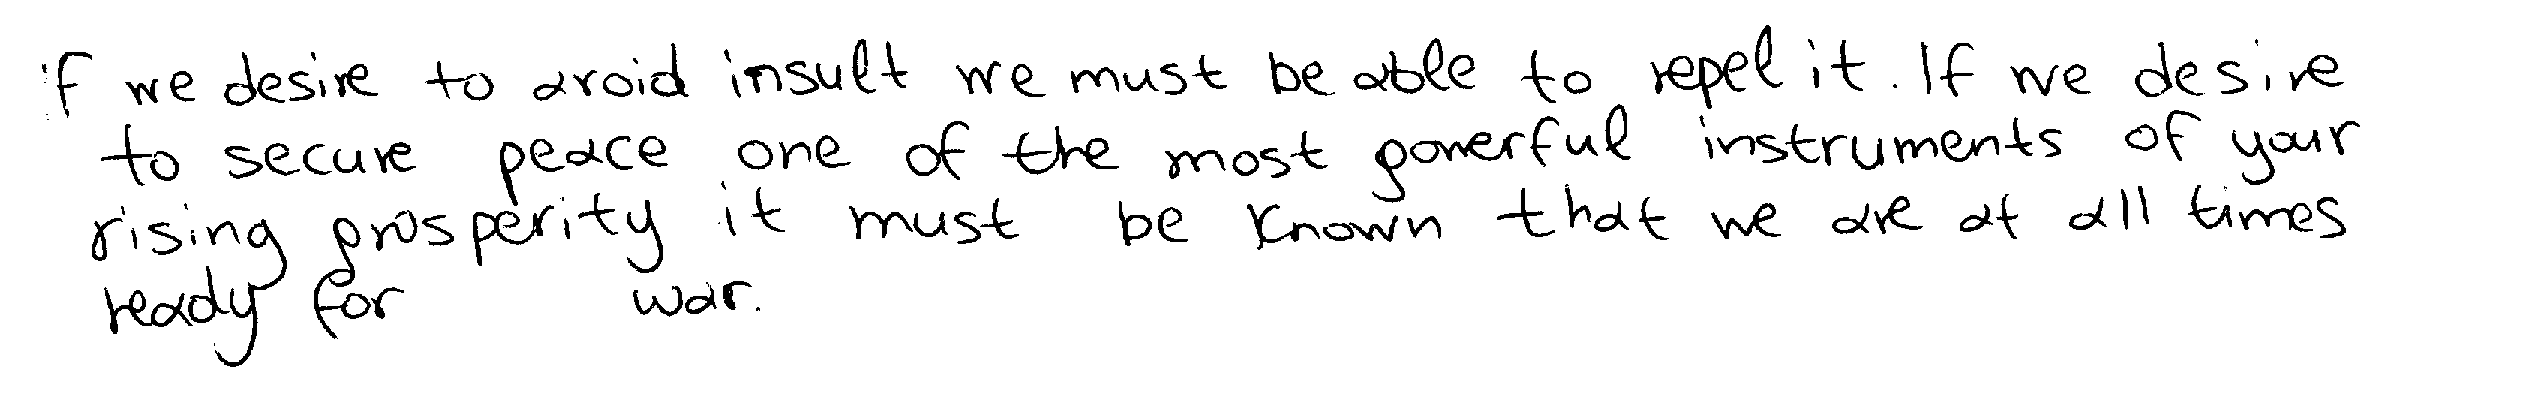 if we desire to avoid insult we must be able to repel it. If we desire
to secure peace one of the most powerful instruments of your
rising prosperity it must be known that we are at all times
ready for war.